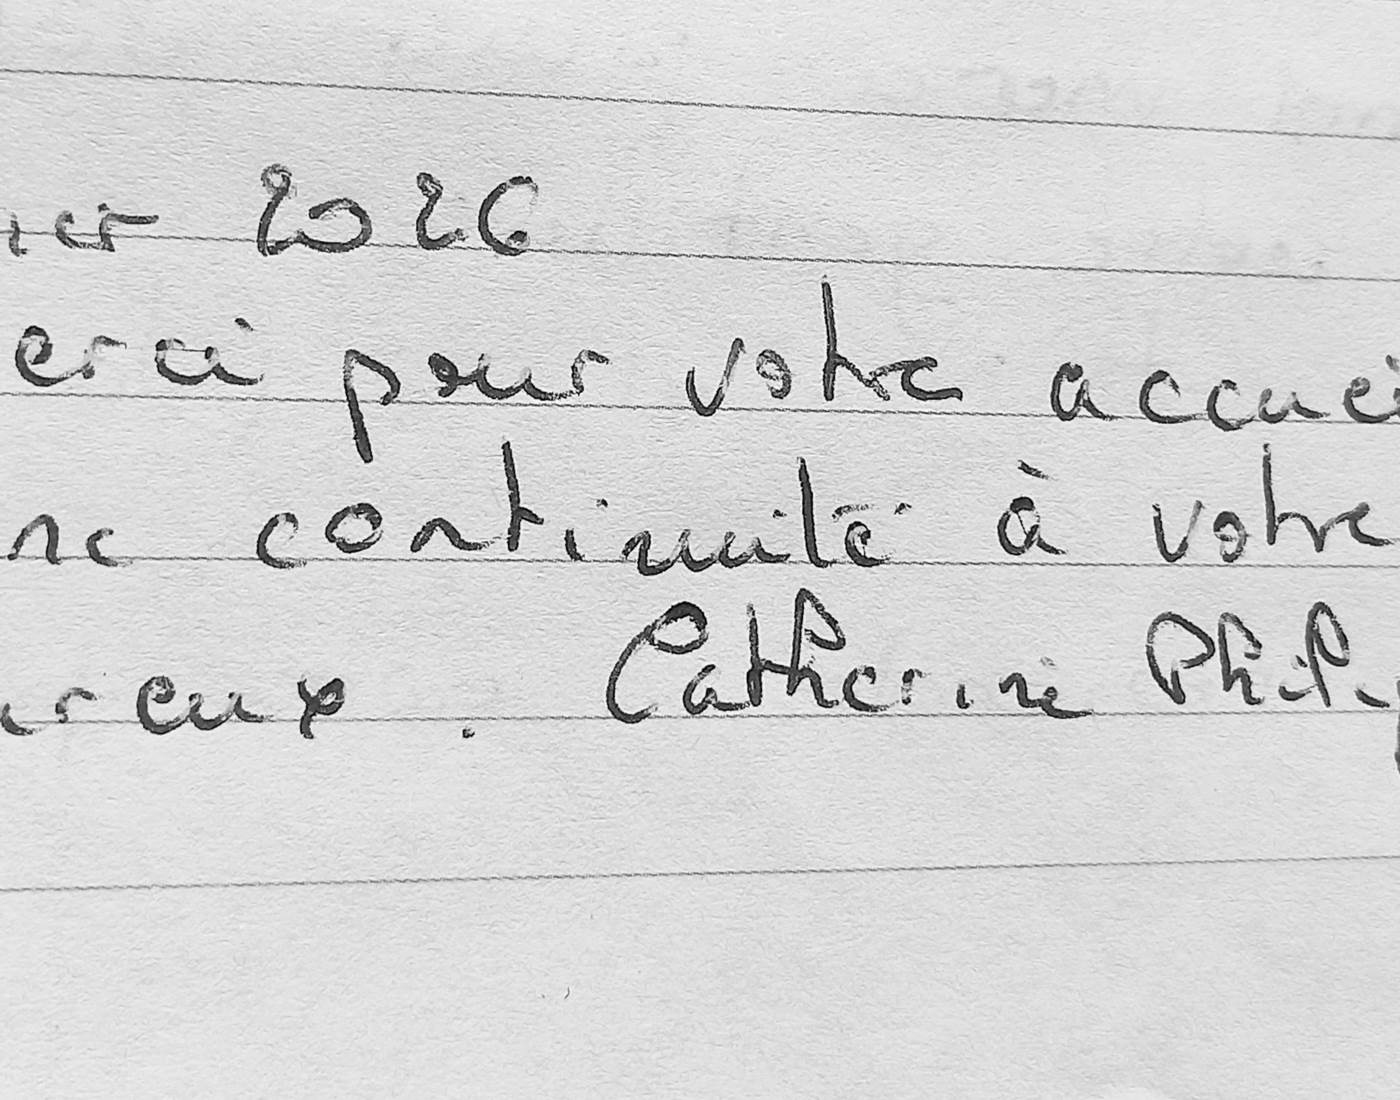 ier 2026
erci pour votre accuei
ne continuité à votre
ureux. Catherine Philip